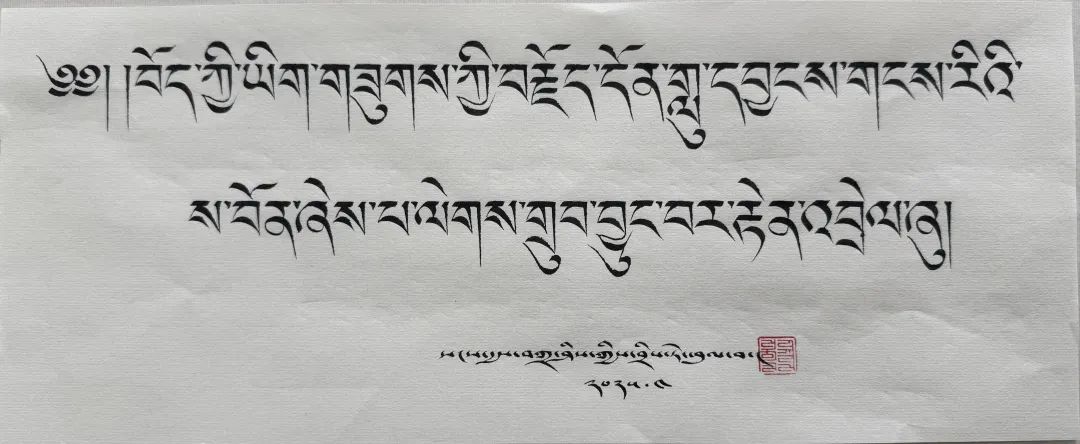 ༄༅། །བོད་ཀྱི་ཡིག་གཟུགས་ཀྱི་བརྗོད་དོན་གླུ་དབྱངས་གངས་རིའི་
ས་བོན་ཞེས་པ་ལེགས་གྲུབ་བྱུང་བར་རྟེན་འབྲེལ་ཞུ།
༢༠༢༥.༩